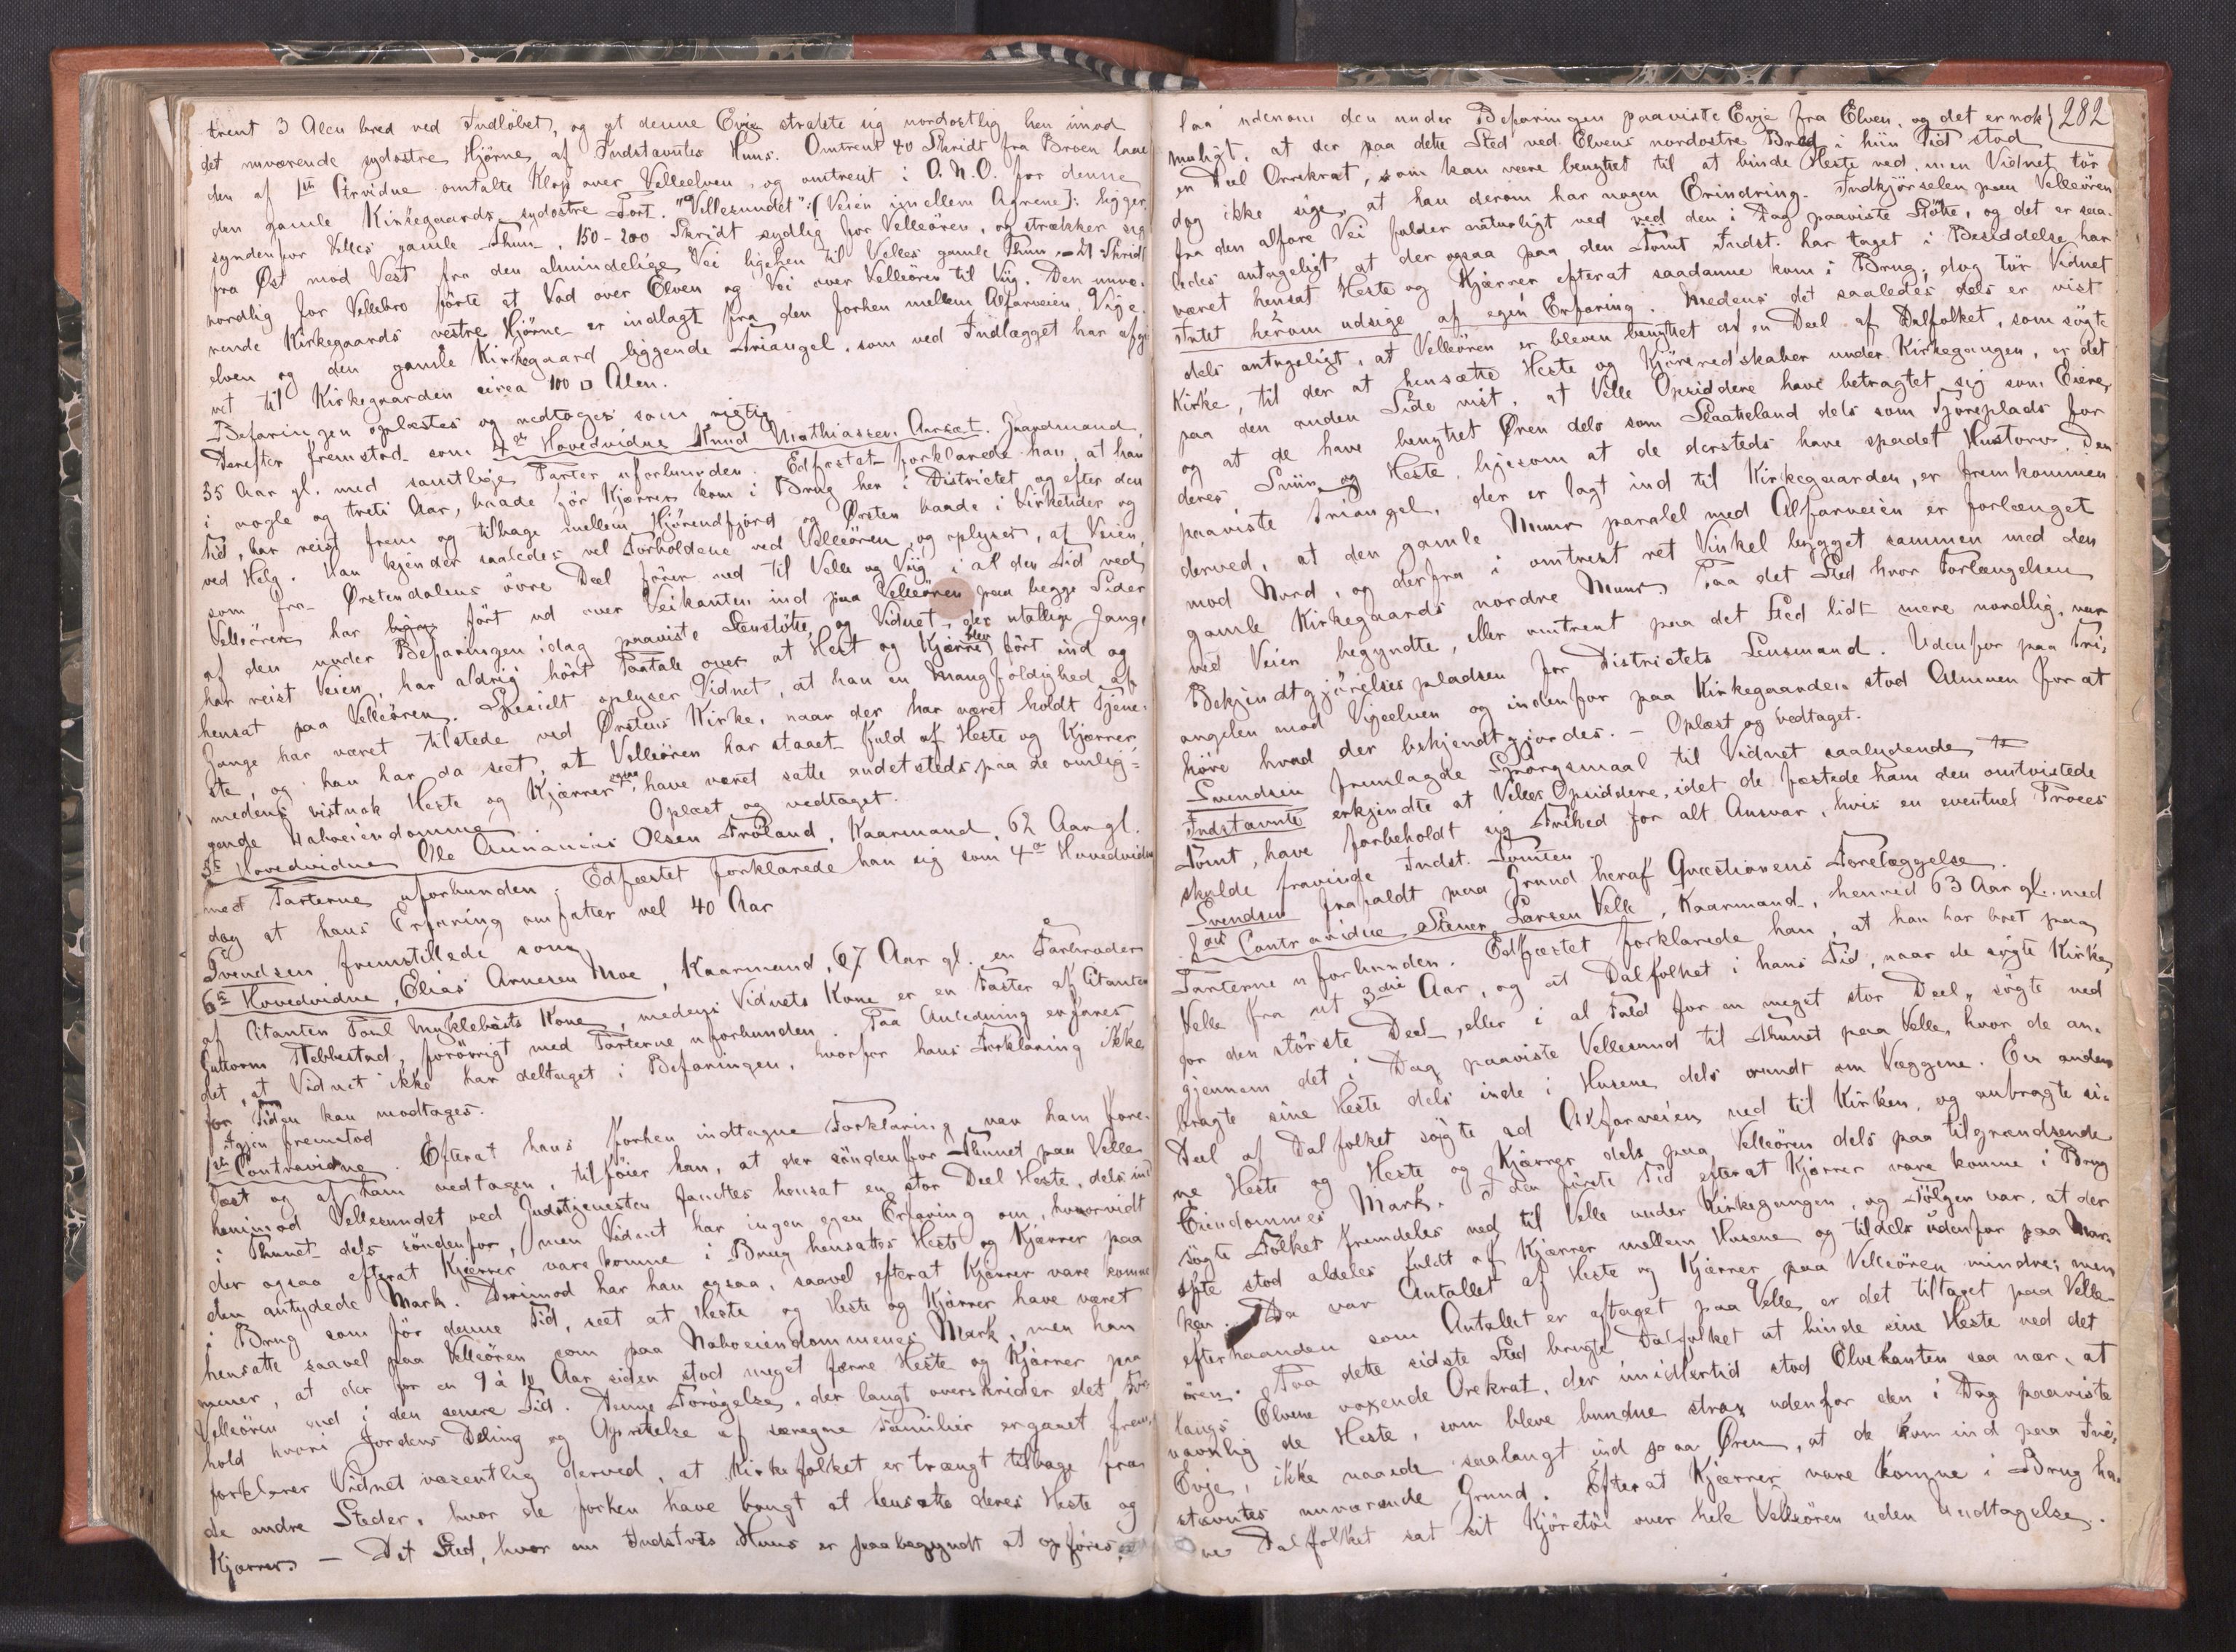 trent 3 Alen bred ved Indløbet, og at denne Evje strakte sig nordostlig hen imod
det nuværende sydostre Hjørne af Indstævntes Huus. Omtrent 40 Skridt fra Broen laae
den af 1ste Ctrvidne omtalte Klop over Velleelven, og omtrent i O.N.O. for denne
den gamle Kirkegaards sydostre Port. "Vellesundet" :/ Veien imellem Agrene /: ligger
syndenfor Velles gamle Thun, 150-200 Skridt sydlig for Velleøren, og strækker sig
fra Øst mod Vest fra den almindelige Vei ligehen til Velles gamle Thun. Skridt
nordlig for Vellebro førte et Vad over Elven og Vei over Velleøren til Viig. Den nuvæ-
rende Kirkegaards vestre Hjørne er indlagt fra den forhen mellem Alfarveien, Vije-
elven og den gamle Kirkegaard liggende Triangel, som ved Indlægget har afgi-
vet til Kirkegaarden circa 100 □ Alen.
Befaringen oplæstes og vedtoges som rigtig.
Derefter fremstod som 4de Hovedvidne Knud Mathiassen Aarsæt, Gaardmand,
35 Aar gl. med samtlige Parter uforbunden. Edfæstet forklarede han, at han
i nogle og treti Aar, baade før Kjærrer kom i Brug her i Districtet og efter den
Tid, har reist frem og tilbage mellem Hjørendfjord og Ørsten baade i Virketider og
ved Helg. Han kjender saaledes vel Forholdene ved Velleøren, og oplyser, at Veien,
som fra Ørstendalens øvre Deel fører ned til Velle og Viig i al den Tid ved
Velleøren har ført ud over Veikanten ind paa Velleøren paa begge Sider
af den under Befaringen idag paaviste Steenstøtte, og Vidnet, der utallige Gange
har reist Veien, har aldrig hørt Paatale over at Hest og Kjærre blev ført ind og
hensat paa Velleøren. Specielt oplyser Vidnet, at han en Mangfoldighed af
Gange har været tilstede ved Ørstens Kirke, naar der har været holdt Tjene-
ste, og han har da seet, at Velleøren har staaet fuld af Heste og Kjærrer
medens vistnok Heste og Kjærrer ogsaa have været satte andetsteds paa de omlig-
gende Naboeiendomme. Oplæst og vedtaget.
5te Hovedvidne Ole Annanias Olsen Frøland, Kaarmand, 62 Aar gl.
med Parterne uforbunden. Edfæstet forklarede han sig som 4de Hovedvidne
dog at hans Erfaring omfatter vel 40 Aar
Svendsen fremstillede som
6te Hovedvidne, Elias Arnesen Moe, Kaarmand, 67 Aar gl. en Farbroder
af Citanten Poul Myklebusts Kone, medens Vidnets Kone er en Faster af Citanten
Guttorm Nebbestad, forøvrigt med Parterne uforbunden. Paa Anledning erfares
det, at Vidnet ikke har deltaget i Befaringen, hvorfor hans Forklaring ikke
for Tiden kan modtages.
Igjen fremstod
1ste Contravidne. Efterat hans forhen indtagne Forklaring var ham fore-
læst og af ham vedtagen, tilføier han, at der søndenfor Thunet paa Velle
henimod Vellesundet ved Gudstjenesten fandtes hensat en stor Deel Heste, dels ind
i Thunet dels søndenfor, men Vidnet har ingen egen Erfaring om, hvorvidt
der ogsaa efterat Kjærrer vare komne i Brug hensattes Heste og Kjærrer paa
den antydede Mark. Derimod har han ogsaa, saavel efterat Kjærrer vare komne
i Brug som før denne Tid, seet at Heste og Heste og Kjærrer have været
hensatte saavel paa Velleøren som paa Naboeiendommenes Mark, men han
mener, at der for en 9 à 10 Aar siden stod meget færre Heste og Kjærrer paa
Velleøren end i den senere Tid. Denne Forøgelse, der langt overskrider det For-
hold hvori Jordens Deling og Oprettelse af særegne Familier er gaaet frem,
forklarer Vidnet væsentlig derved, at Kirkefolket er trængt tilbage fra
de andre Steder, hvor de forhen have brugt at hensætte deres Heste og
Kjærrer. — Det Sted, hvor nu Indstvtes Huus er paabegyndt at opføres,
282
laa udenom den under Befaringen paaviste Evje fra Elven, og det er nok
muligt, at der paa dette Sted ved Elvens nordostre Bred i hiin Tid stod
en Deel Orrekrat, som kan være benyttet til at binde Heste ved, men Vidnet tør
dog ikke sige, at han derom har nogen Erindring. Indkjørselen paa Velleøren
fra den alfare Vei falder naturligt ved ved den i Dag paaviste Støtte, og det er saa-
ledes antageligt at der ogsaa paa den Tomt Indst. har taget i Besiddelse har
været hensat Heste og Kjærrer efterat saadanne kom i Brug; dog tør Vidnet
Intet herom udsige af egen Erfaring. Medens det saaledes dels er vist
dels antageligt, at Velleøren er bleven benyttet af en Deel af Dalfolket, som søgte
Kirke, til der at hensætte Heste og Kjøreredskaber under Kirkegangen, er det
paa den anden Side vist, at Velle Opsiddere have betragtet sig som Eiere,
og at de have benyttet Øren dels som Slaatteland dels som Tjøreplads for
deres Sviin og Heste, ligesom at de dersteds have spadet Hustorv. Den
paaviste Triangel, der er lagt ind til Kirkegaarden, er fremkommen
derved, at den gamle Muur paralel med Alfarveien er forlænget
mod Nord, og derfra i omtrent ret Vinkel bygget sammen med den
gamle Kirkegaards nordre Muur. Paa det Sted hvor Forlængelsen
ved Veien begyndte, eller omtrent paa det Sted lidt mere nordlig, var
Bekjendtgjørelsespladsen for Districtets Lensmand. Udenfor paa Tri-
anglen mod Vijeelven og indenfor paa Kirkegaarden stod Almuen for at
høre hvad der bekjendtgjordes. – Oplæst og vedtaget.
Svendsen fremlagde Spørgsmaal til Vidnet saalydende
Indstævnte erkjendte at Velles Opsiddere, idet de fæstede ham den omtvistede
Tomt, have forbeholdt sig Frihed for alt Ansvar, hvis en eventuel Proces
skulde fravinde Indst. Tomten.
Svendsen frafaldt paa Grund heraf Qvæstionens Forelæggelse.
8de Contravidne Stener Larsen Velle, Kaarmand, henved 63 Aar gl. med
Parterne uforbunden. Edfæstet forklarede han, at han har boet paa
Velle fra sit 3die Aar, og at Dalfolket i hans Tid, naar de søgte Kirke,
for den største Deel, eller i al Fald for en meget stor Deel, søgte ned
gjennem det i Dag paaviste Vellesund til Thunet paa Velle, hvor de an-
bragte sine Heste dels inde i Husene dels rundt om Væggene. En anden
Deel af Dalfolket søgte ad Alfarveien ned til Kirken, og anbragte si-
ne Heste og Heste og Kjærrer dels paa Velleøren dels paa tilgrændsende
Eiendommes Mark. I den første Tid efterat Kjærrer vare komne i Brug
søgte Folket fremdeles ned til Velle under Kirkegangen, og Følgen var, at der
ofte stod aldeles fuldt af Kjærrer mellem Husene og tildels udenfor paa Mar-
ken. Da var Antallet af Heste og Kjærrer paa Velleøren mindre; men
efterhaanden som Antallet er aftaget paa Velle, er det tiltaget paa Velle-
øren. Paa dette sidste Sted brugte Dalfolket at binde sine Heste ved det
langs Elvene voxende Orekrat, der imidlertid stod Elvekanten saa nær, at
navnlig de Heste, som bleve bundne strax udenfor den i Dag paaviste
Evje, ikke naaede saalangt ind paa Øren, at de kom ind paa Ind-
stævntes nuværende Grund. Efterat Kjærrer vare komne i Brug ha-
ve Dalfolket sat sit Kjøretøi over hele Velleøren uden Undtagelse.